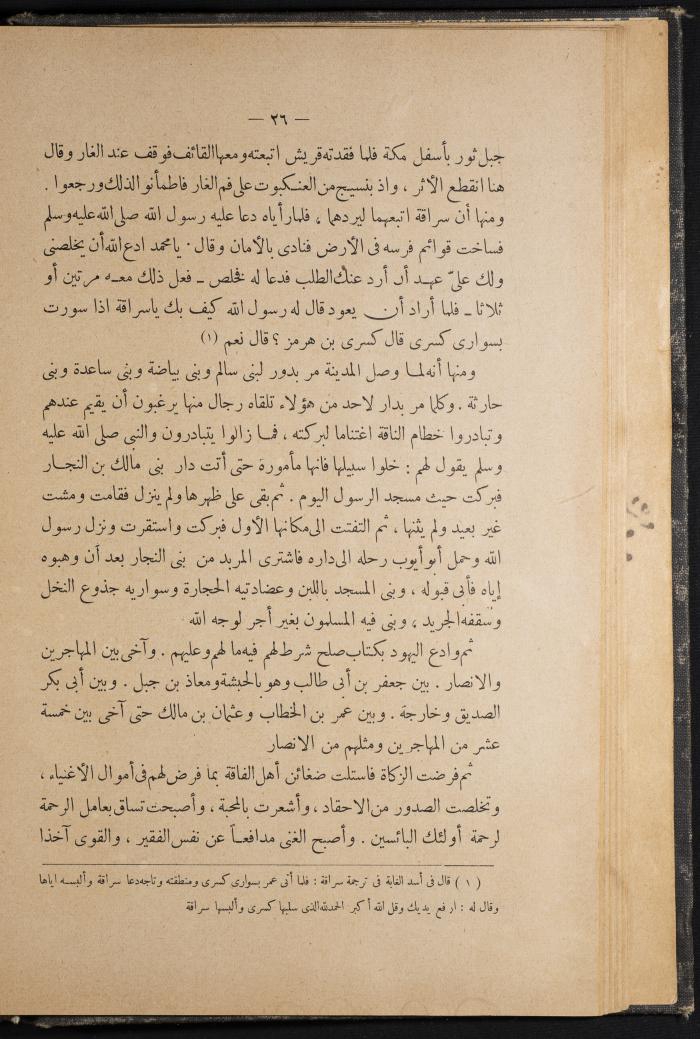 — ٢٦ —
جبل ثور بأسفل مكة فلما فقدته قريش اتبعته ومعها القائف فوقف عند الغار وقال
هنا انقطع الأثر ، واذ بنسيج من العنكبوت على فم الغار فاطمأنوا لذلك ورجعوا .
ومنها أن سراقة اتبعهما ليردهما ، فلما رأياه دعا عليه رسول الله صلى الله عليه وسلم
فساخت قوائم فرسه فى الأرض فنادى بالأمان وقال . يا محمد ادع الله أن يخلصنى
ولك علىّ عهد أن أرد عنك الطلب فدعا له فخلص ــ فعل ذلك معه مرتين أو
ثلاثا ــ فلما أراد أن يعود قال له رسول الله كيف بك ياسراقة اذا سورت
بسوارى كسرى قال كسرى بن هرمز ؟ قال نعم (١)
ومنها أنه لما وصل المدينة مر بدور لبنى سالم وبنى بياضة وبنى ساعدة وبنى
حارثة . وكلما مر بدار لاحد من هؤلاء تلقاه رجال منها يرغبون أن يقيم عندهم
وتبادروا خطام الناقة اغتناما لبركته ، فما زالوا يتبادرون والنبى صلى الله عليه
وسلم يقول لهم : خلوا سبيلها فانها مأمورة حتى أتت دار بنى مالك بن النجار
فبركت حيث مسجد الرسول اليوم . ثم بقى على ظهرها ولم ينزل فقامت ومشت
غير بعيد ولم يثنها ، ثم التفتت الى مكانها الأول فبركت واستقرت ونزل رسول
الله وحمل أبو أيوب رحله الى داره فاشترى المربد من بنى النجار بعد أن وهبوه
إياه فأبى قبوله ، وبنى المسجد باللبن وعضادتيه الحجارة وسواريه جذوع النخل
وسقفه الجريد ، وبنى فيه المسلمون بغير أجر لوجه الله
ثم وادع اليهود بكتاب صلح شرط لهم فيه ما لهم وعليهم . وآخى بين المهاجرين
والانصار . بين جعفر بن أبى طالب وهو بالحبشة ومعاذ بن جبل . وبين أبى بكر
الصديق وخارجة . وبين عمر بن الخطاب وعثمان بن مالك حتى آخى بين خمسة
عشر من المهاجرين ومثلهم من الانصار
ثم فرضت الزكاة فاستلت ضغائن أهل الفاقة بما فرض لهم فى أموال الأغنياء ،
وتخلصت الصدور من الاحقاد ، وأشعرت بالمحبة ، وأصبحت تساق بعامل الرحمة
لرحمة أولئك البائسين . وأصبح الغنى مدافعاً عن نفس الفقير ، والقوى آخذا
( ١ ) قال فى أسد الغابة فى ترجمة سراقة : فلما أتى عمر بسوارى كسرى ومنطقته وتاجه دعا سراقة وألبسه اياها
وقال له : ارفع يديك وقل الله أكبر الحمد لله الذى سلبها كسرى وألبسها سراقة